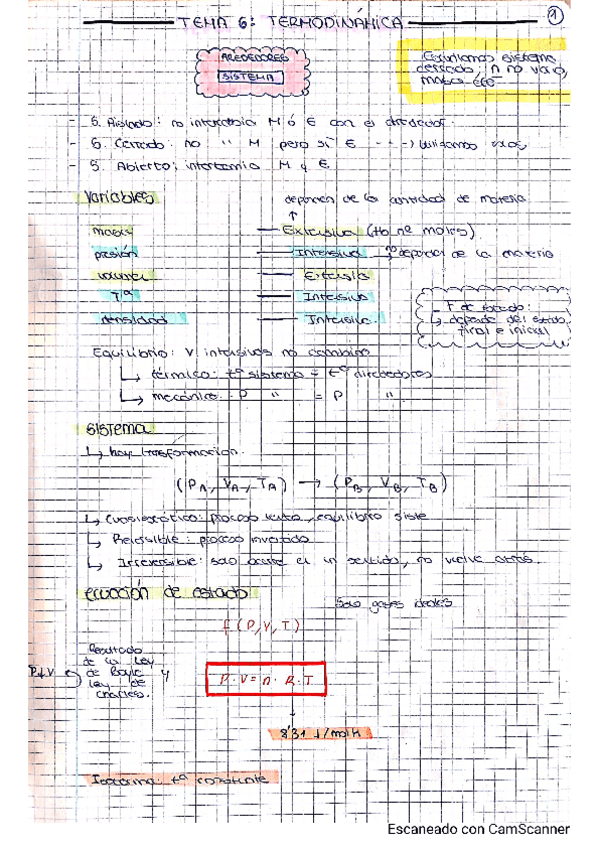 TEMA 6: TERMODINÁMICA
1
ALREDEDORES
SISTEMA
Estudiamos sistema
cerrado, n no varía,
masa cte
- S. Aislado: no intercambia M ó E con el alrededor.
- S. Cerrado: no " M pero sí E - - -> utilizamos
- S. Abierto: intercambia M y E
Variables
dependen de la cantidad de materia
masa — Extensiva (Hb nº moles)
presión — Intensiva → no dependen de la materia
volumen — Extensiva
Tª — Intensiva
densidad — Intensiva.
- F de estado:
↳ depende del estado
final e inicial
Equilibrio: V intensivas no cambian
↳ térmico: tª sistema = tª alrededores
↳ mecánico: P " = P "
SISTEMA
↳ hay trasformación.
(PA, VA, TA) → (PB, VB, TB)
↳ Cuasiestático: proceso lento, equilibrio
↳ Reversible: proceso invertido
↳ Irreversible: solo ocurre en un sentido, no vuelve atrás.
ecuación de estado
Solo gases ideales
f (P, V, T)
Resultado
de la Ley
de Boyle y
Ley de
Charles.
P↓V
P·V = n·R·T
8'31 J/molK
Isoterma: tª constante
Escaneado con CamScanner